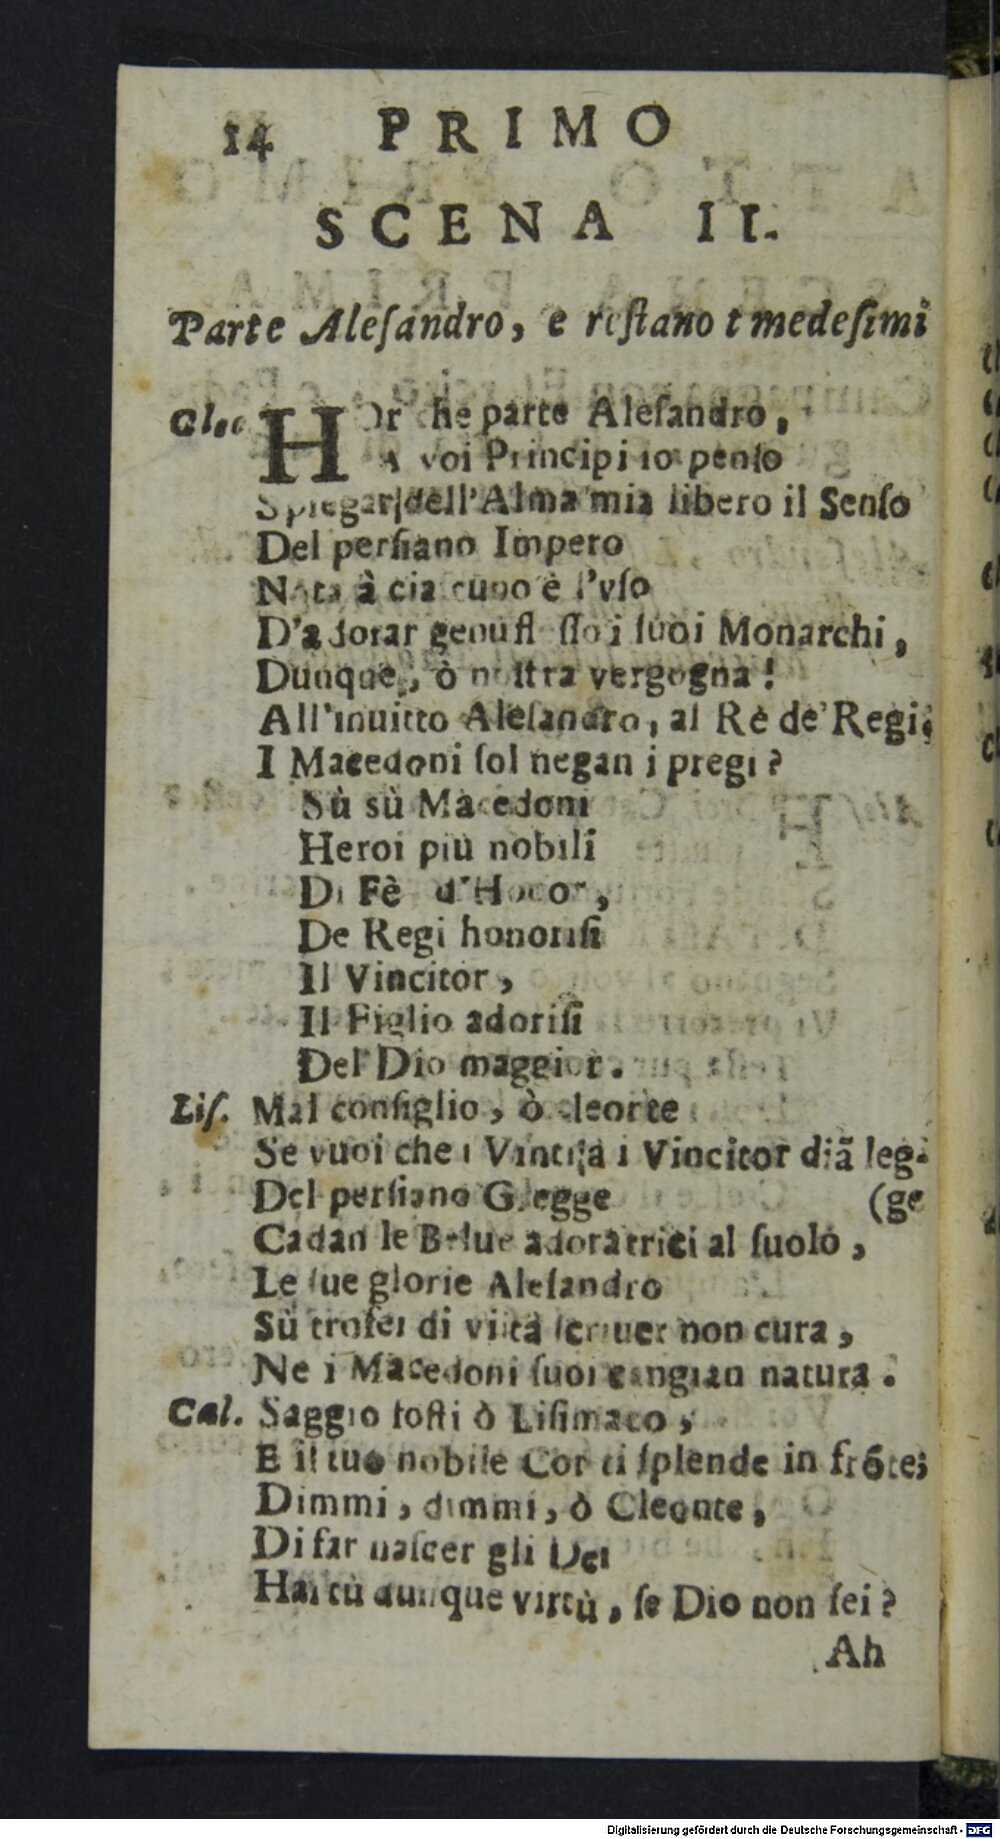 14 PRIMO
SCENA II.
Parte Aleſandro, e reſtano i medeſimi
Cleo HOr che parte Aleſandro,
A voi Principi io penſo
Spiegar dell'Alma mia libero il Senſo
Del perſiano Impero
Nota à ciaſcuno è l'vſo
D'adorar genufleſſo i ſuoi Monarchi,
Dunque, ò noſtra vergogna!
All'inuitto Aleſandro, al Rè de' Regi,
I Macedoni ſol negan i pregi?
Sù sù Macedoni
Heroi più nobili
Di Fè d'Honor,
De Regi honoriſi
Il Vincitor,
Il Figlio adoriſi
Del Dio maggior.
Liſ. Mal conſiglio, ò cleonte
Se vuoi che i Vinti a i Vincitor diã leg-
Del perſiano Gregge (ge
Cadan le Belue adoratrici al ſuolo,
Le ſue glorie Aleſandro
Sù trofei di viltà ſcriuer non cura,
Ne i Macedoni ſuoi cangian natura.
Cal. Saggio foſti ò Liſimaco,
E il tuo nobile Cor ti ſplende in frõte;
Dimmi, dimmi, ò Cleonte,
Di far naſcer gli Dei
Hai tù dunque virtù, ſe Dio non ſei?
Ah
Digitalisierung gefördert durch die Deutsche Forschungsgemeinschaft - DFG